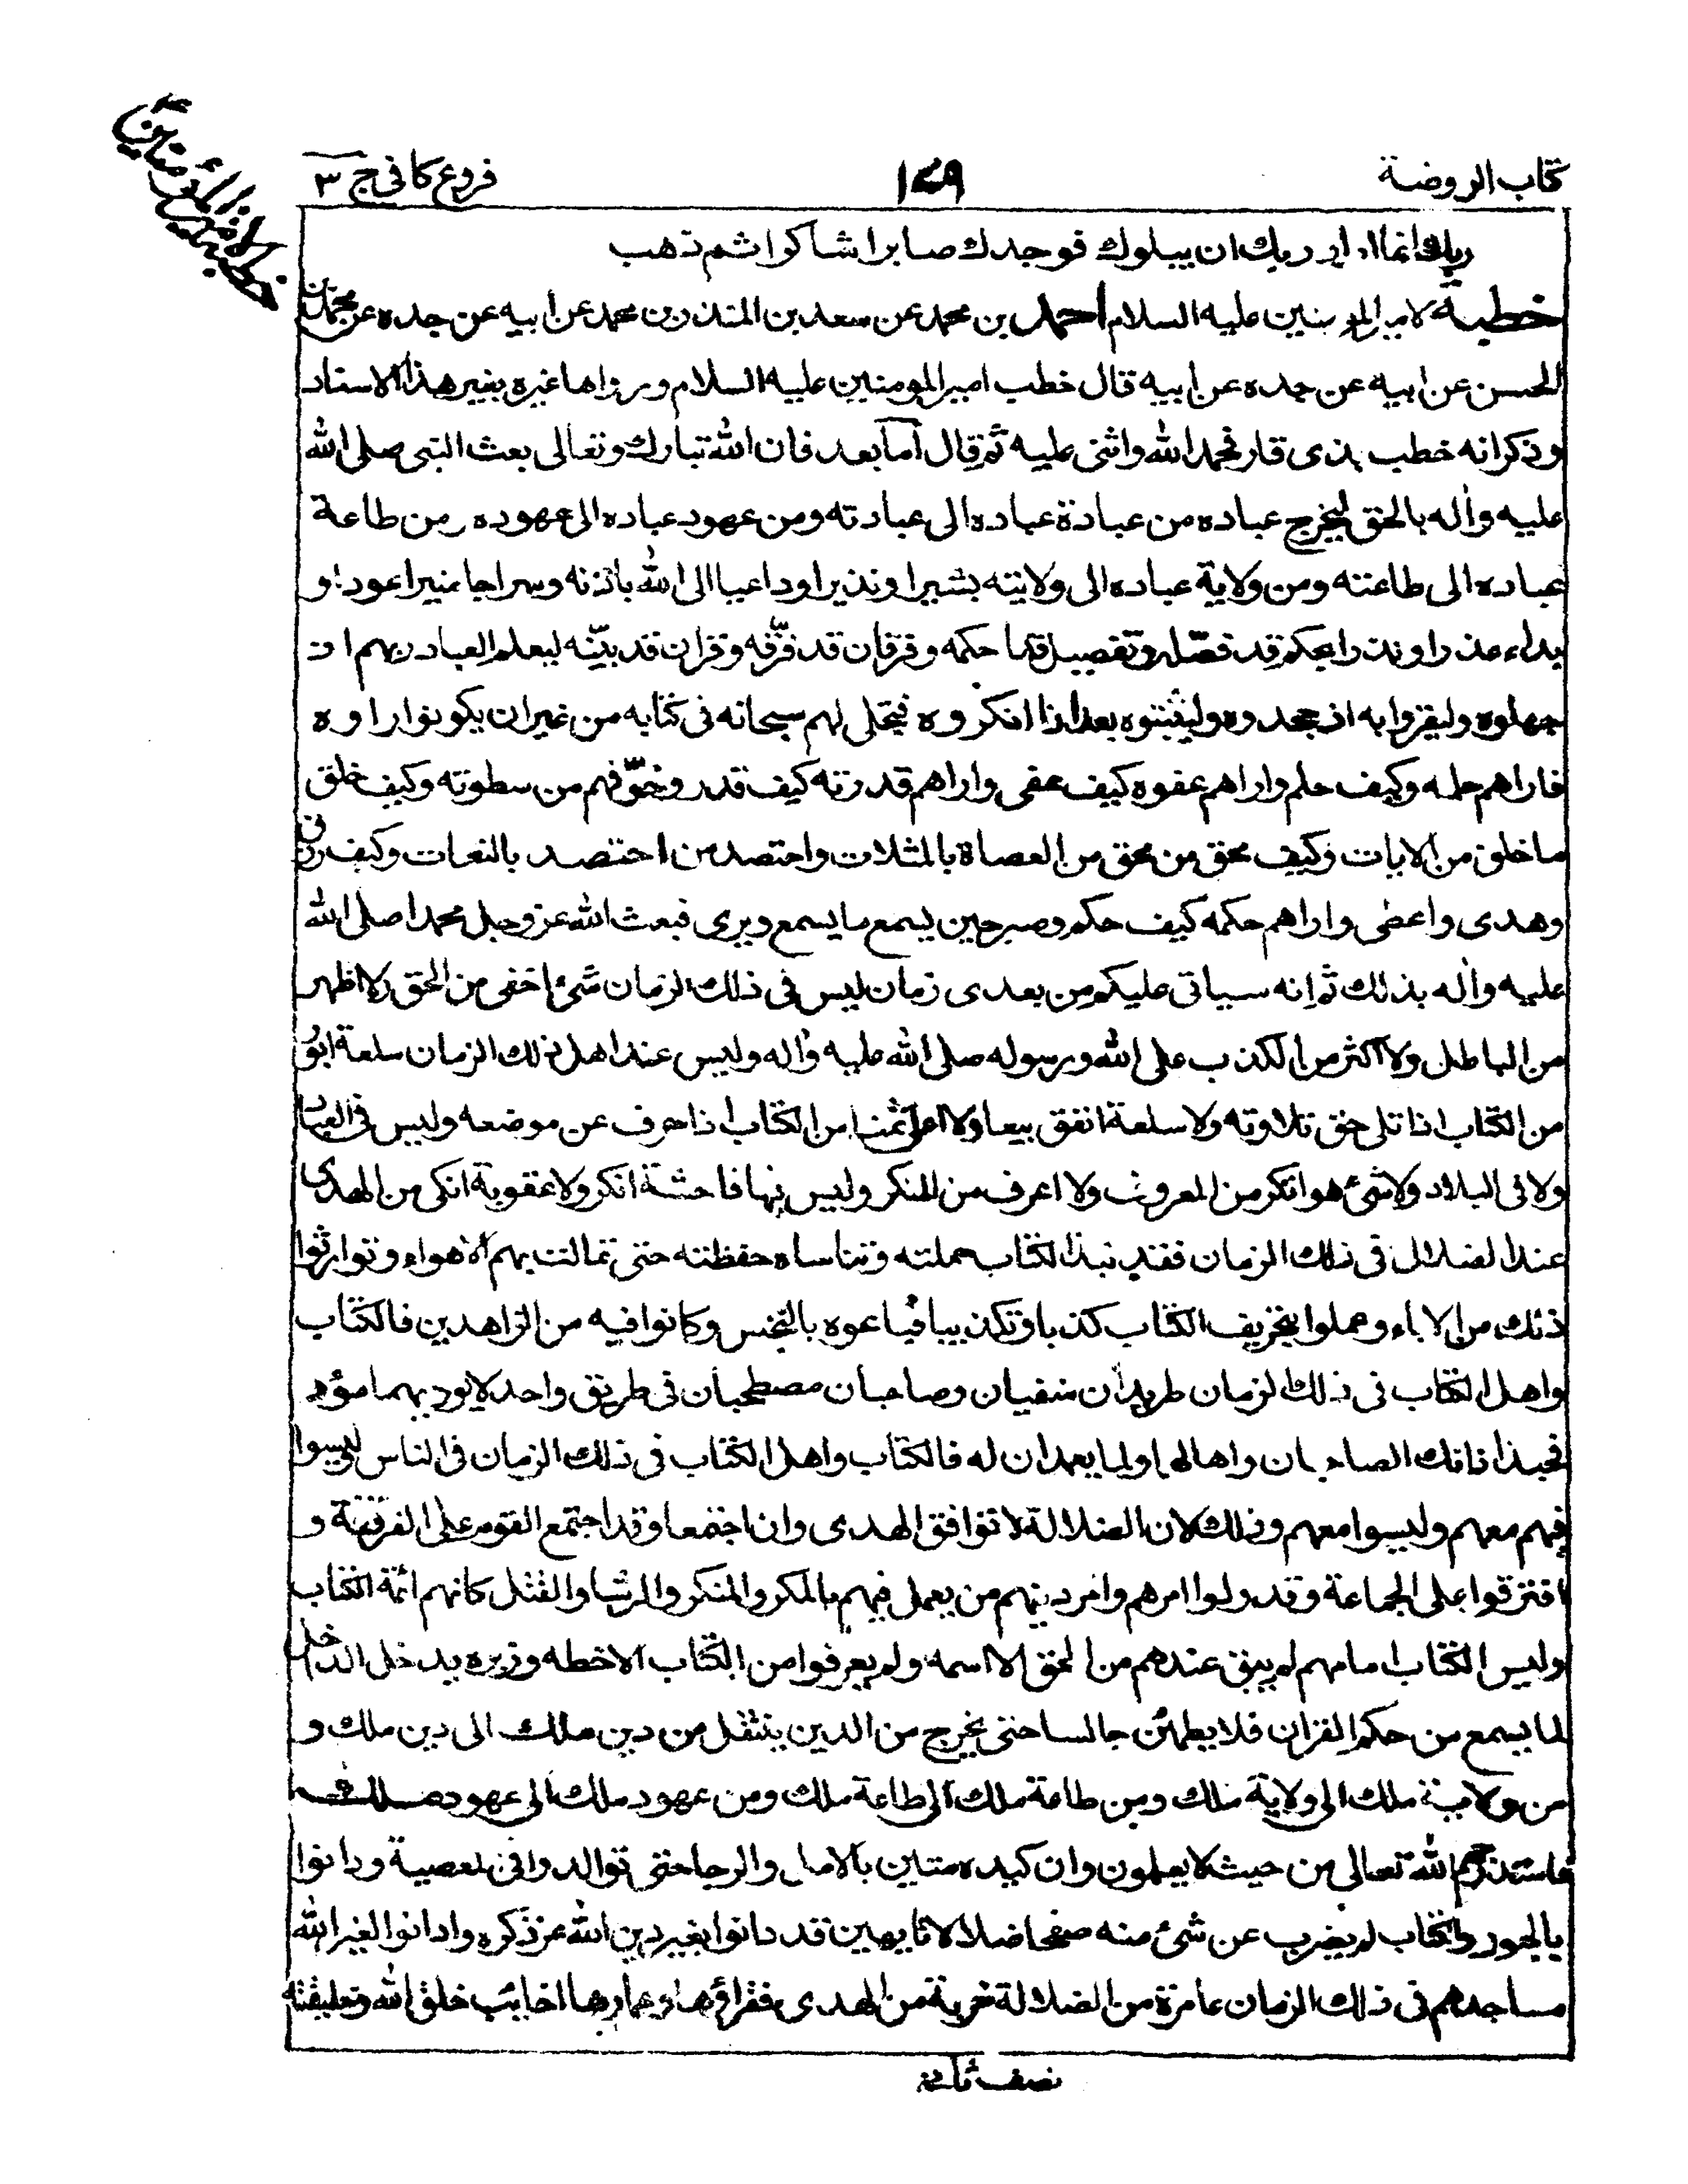 كتاب الروضة
١٤٩
فروع كافى ج ٣
ربك انما اراد ربك ان يبلوك فوجدك صابرا شاكرا ثم ذهب
خطبة لامير المومنين عليه السلام احمد بن محمد عن سعد بن المنذر بن محمد عن ابيه عن جده عن محمد بن
الحسن عن ابيه عن جده عن ابيه قال خطب امير المومنين عليه السلام ورواها غيره بغير هذا الاسناد
وذكر انه خطب بذى قار فحمد الله واثنى عليه ثم قال اما بعد فان الله تبارك وتعالى بعث النبى صلى الله
عليه واله بالحق ليخرج عباده من عبادة عباده الى عبادته ومن عهود عباده الى عهوده ومن طاعة
عباده الى طاعته ومن ولاية عباده الى ولايته بشيرا ونذيرا وداعيا الى الله باذنه وسراجا منيرا عودا و
بداء عذرا ونذرا بحكم قد فصّله وتفصيل قد احكمه وفرقان قد فرّقه وقران قد بيّنه ليعلم العباد ربهم اذ
جهلوه وليقروا به اذ جحدوه وليثبتوه بعد اذا انكروه فتجلى لهم سبحانه فى كتابه من غير ان يكونوا راوه
فاراهم حلمه وكيف حلم واراهم عفوه كيف عفى واراهم قدرته كيف قدر وخوّفهم من سطوته وكيف خلق
ما خلق من الايات وكيف محق من محق من العصاة بالمثلات واحتصد من احتصد بالنقمات وكيف رزق
وهدى واعطى واراهم حكمه كيف حكم وصبر حين يسمع ما يسمع ويرى فبعث الله عز وجل محمدا صلى الله
عليه واله بذلك ثم انه سياتى عليكم من بعدى زمان ليس فى ذلك الزمان شئ اخفى من الحق ولا اظهر
من الباطل ولا اكثر من الكذب على الله ورسوله صلى الله عليه واله وليس عند اهل ذلك الزمان سلعة ابور
من الكتاب اذا تلى حق تلاوته ولا سلعة انفق بيعا ولا اغلى ثمنا من الكتاب اذا حرف عن موضعه وليس فى العباد
ولا فى البلاد ولا شئ هو انكر من المعروف ولا اعرف من المنكر وليس فيها فاحشة انكر ولا عقوبة انكى من الهدى
عند الضلال فى ذلك الزمان فقد نبذ الكتاب حملته وتناساه حفظته حتى تمالت بهم الاهواء وتوارثوا
ذلك من الاباء وعملوا بتحريف الكتاب كذبا وتكذيبا فباعوه بالبخس وكانوا فيه من الزاهدين فالكتاب
واهل الكتاب فى ذلك الزمان طريدان منفيان وصاحبان مصطحبان فى طريق واحد لا يوديهما مؤد
فحبذا ذانك الصاحبان واها لهما ولما يعمدان له فالكتاب واهل الكتاب فى ذلك الزمان فى الناس وليسوا
فيهم معهم وليسوا معهم وذلك لان الضلالة لا توافق الهدى وان اجتمعا وقد اجتمع القوم على الفرقة و
افترقوا على الجماعة وقد ولوا امرهم وامر دينهم من يعمل فيهم بالمكر والمنكر والرشا والقتل كانهم ائمة الكتاب
وليس الكتاب امامهم لم يبق عندهم من الحق الا اسمه ولم يعرفوا من الكتاب الا خطه وزبره يدخل الداخل
لما يسمع من حكم القران فلا يطمئن جالسا حتى يخرج من الدين ينتقل من دين ملك الى دين ملك و
من ولاية ملك الى ولاية ملك ومن طاعة ملك الى طاعة ملك ومن عهود ملك الى عهود ملك
فاستدرجهم الله تعالى من حيث لا يعلمون وان كيده متين بالامل والرجا حتى توالدوا فى المعصية ودانوا
بالجور والكتاب لم يضرب عن شئ منه صفحا ضلالا تايهين قد دانوا بغير دين الله عز ذكره وادانوا لغير الله
مساجدهم فى ذلك الزمان عامرة من الضلالة خربة من الهدى فقراؤها وعمارها اخائب خلق الله وخليقته